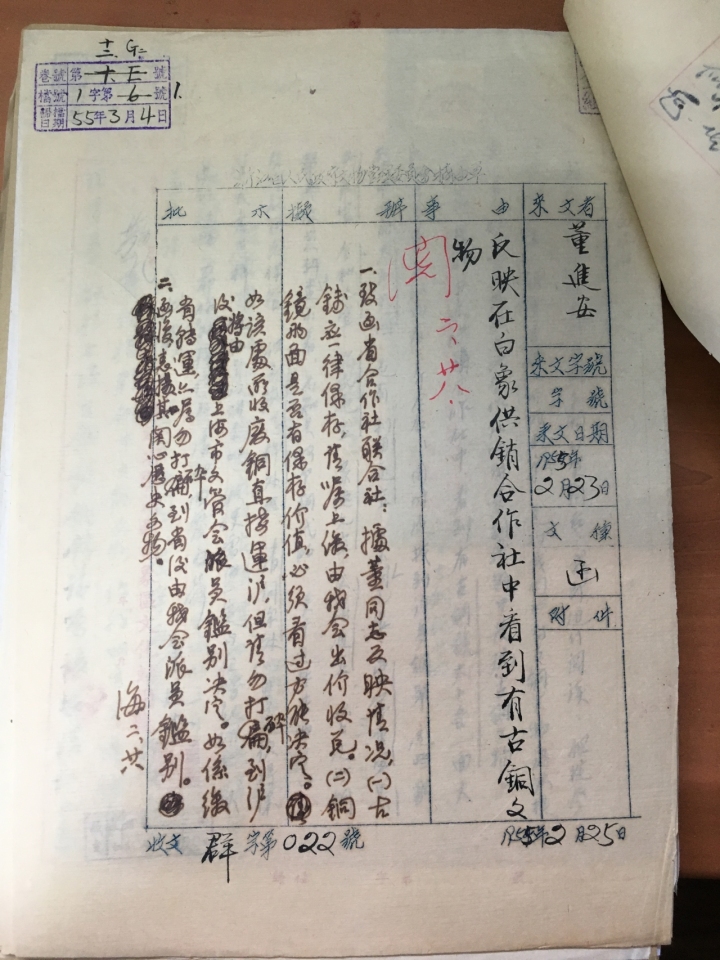 十三 G=
卷號 第 十 E 號
檔號 1 字第 6 號
歸檔日期 55年3月4日
1.
來文者
董進安
來文字號
字 號
來文日期
1955年
2月23日
文 種
函
附件
事 由
反映在白象供銷合作社中看到有古銅文
物
閱 二、廿八
擬 辦
批 示
一、致函省合作社聯合社：據董同志反映情况，(一)古
錢应一律保存，請收上後由我会出价收兑。(二)銅
鏡的面是否有保存价值，必須看过方能决定。
如該處所收廢銅直接運沪，但請勿打碎，到沪
後將由上海市文管会派員鑑别决定。如係繳
省轉運亦希勿打碎到省後由我会派員鑑别。
二、函復董振其関心歷史文物。
海 二、廿六
收文 群 字第022號
1955年2月25日